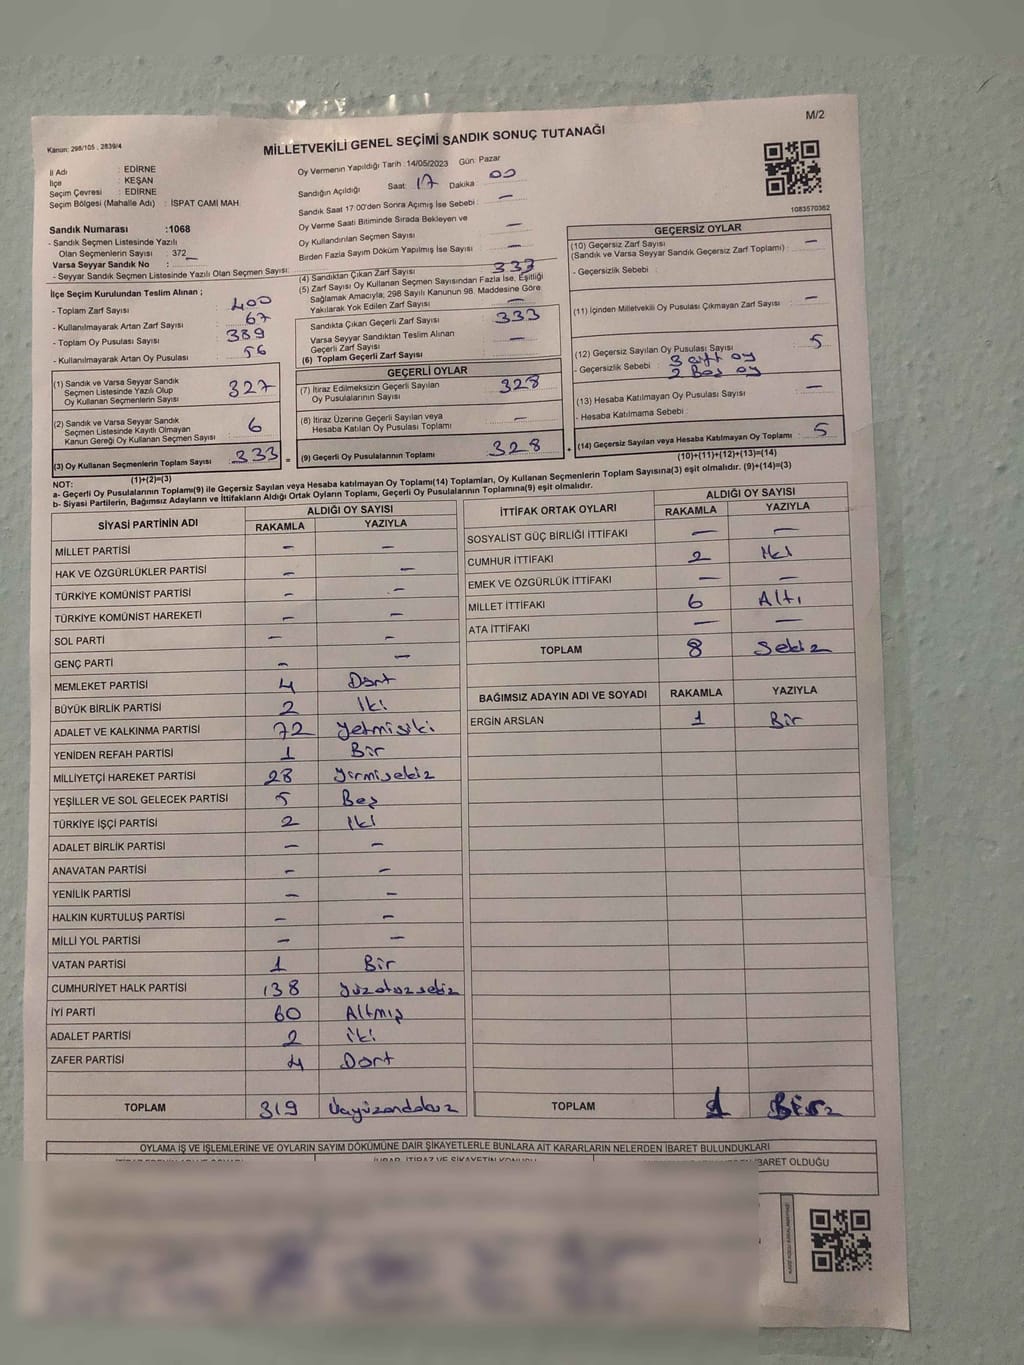 M/2
Kanun: 298/105 , 2839/4
MİLLETVEKİLİ GENEL SEÇİMİ SANDIK SONUÇ TUTANAĞI
İl Adı : EDİRNE
İlçe : KEŞAN
Seçim Çevresi : EDİRNE
Seçim Bölgesi (Mahalle Adı) : İSPAT CAMİ MAH.
Sandık Numarası :1068
- Sandık Seçmen Listesinde Yazılı
Olan Seçmenlerin Sayısı : 372
Varsa Seyyar Sandık No :
- Seyyar Sandık Seçmen Listesinde Yazılı Olan Seçmen Sayısı:
Oy Vermenin Yapıldığı Tarih : 14/05/2023 Gün: Pazar
Sandığın Açıldığı Saat: 17 Dakika : 00
Sandık Saat 17:00'den Sonra Açımış İse Sebebi : —
Oy Verme Saati Bitiminde Sırada Bekleyen ve
Oy Kullandırılan Seçmen Sayısı : —
Birden Fazla Sayım Döküm Yapılmış İse Sayısı : —
1083570362
İlçe Seçim Kurulundan Teslim Alınan ;
- Toplam Zarf Sayısı : 400
- Kullanılmayarak Artan Zarf Sayısı : 67
- Toplam Oy Pusulası Sayısı : 389
- Kullanılmayarak Artan Oy Pusulası : 56
(1) Sandık ve Varsa Seyyar Sandık
Seçmen Listesinde Yazılı Olup
Oy Kullanan Seçmenlerin Sayısı : 327
(2) Sandık ve Varsa Seyyar Sandık
Seçmen Listesinde Kayıtlı Olmayan
Kanun Gereği Oy Kullanan Seçmen Sayısı : 6
(3) Oy Kullanan Seçmenlerin Toplam Sayısı : 333
(1)+(2)=(3)
(4) Sandıktan Çıkan Zarf Sayısı : 333
(5) Zarf Sayısı Oy Kullanan Seçmen Sayısından Fazla İse, Eşitliği
Sağlamak Amacıyla; 298 Sayılı Kanunun 98. Maddesine Göre
Yakılarak Yok Edilen Zarf Sayısı : —
Sandıkta Çıkan Geçerli Zarf Sayısı : 333
Varsa Seyyar Sandıktan Teslim Alınan
Geçerli Zarf Sayısı : —
(6) Toplam Geçerli Zarf Sayısı
GEÇERLİ OYLAR
(7) İtiraz Edilmeksizin Geçerli Sayılan
Oy Pusulalarının Sayısı : 328
(8) İtiraz Üzerine Geçerli Sayılan veya
Hesaba Katılan Oy Pusulası Toplamı : —
= (9) Geçerli Oy Pusulalarının Toplamı : 328
GEÇERSİZ OYLAR
(10) Geçersiz Zarf Sayısı : —
(Sandık ve Varsa Seyyar Sandık Geçersiz Zarf Toplamı)
- Geçersizlik Sebebi :
(11) İçinden Milletvekili Oy Pusulası Çıkmayan Zarf Sayısı : —
(12) Geçersiz Sayılan Oy Pusulası Sayısı : 5
- Geçersizlik Sebebi : 3 çift oy
2 Boş oy
(13) Hesaba Katılmayan Oy Pusulası Sayısı : —
- Hesaba Katılmama Sebebi :
+ (14) Geçersiz Sayılan veya Hesaba Katılmayan Oy Toplamı : 5
(10)+(11)+(12)+(13)=(14)
NOT:
a- Geçerli Oy Pusulalarının Toplamı(9) ile Geçersiz Sayılan veya Hesaba katılmayan Oy Toplamı(14) Toplamları, Oy Kullanan Seçmenlerin Toplam Sayısına(3) eşit olmalıdır. (9)+(14)=(3)
b- Siyasi Partilerin, Bağımsız Adayların ve İttifakların Aldığı Ortak Oyların Toplamı, Geçerli Oy Pusulalarının Toplamına(9) eşit olmalıdır.
SİYASİ PARTİNİN ADI ALDIĞI OY SAYISI
RAKAMLA YAZIYLA
MİLLET PARTİSİ — —
HAK VE ÖZGÜRLÜKLER PARTİSİ — —
TÜRKİYE KOMÜNİST PARTİSİ — —
TÜRKİYE KOMÜNİST HAREKETİ — —
SOL PARTİ — —
GENÇ PARTİ — —
MEMLEKET PARTİSİ 4 Dört
BÜYÜK BİRLİK PARTİSİ 2 İki
ADALET VE KALKINMA PARTİSİ 72 Yetmişiki
YENİDEN REFAH PARTİSİ 1 Bir
MİLLİYETÇİ HAREKET PARTİSİ 28 Yirmisekiz
YEŞİLLER VE SOL GELECEK PARTİSİ 5 Beş
TÜRKİYE İŞÇİ PARTİSİ 2 İki
ADALET BİRLİK PARTİSİ — —
ANAVATAN PARTİSİ — —
YENİLİK PARTİSİ — —
HALKIN KURTULUŞ PARTİSİ — —
MİLLİ YOL PARTİSİ — —
VATAN PARTİSİ 1 Bir
CUMHURİYET HALK PARTİSİ 138 Yüzotuzsekiz
İYİ PARTİ 60 Altmış
ADALET PARTİSİ 2 iki
ZAFER PARTİSİ 4 Dört
TOPLAM 319 Üçyüzondokuz
İTTİFAK ORTAK OYLARI ALDIĞI OY SAYISI
RAKAMLA YAZIYLA
SOSYALİST GÜÇ BİRLİĞİ İTTİFAKI — —
CUMHUR İTTİFAKI 2 İki
EMEK VE ÖZGÜRLÜK İTTİFAKI — —
MİLLET İTTİFAKI 6 Altı
ATA İTTİFAKI — —
TOPLAM 8 Sekiz
BAĞIMSIZ ADAYIN ADI VE SOYADI RAKAMLA YAZIYLA
ERGİN ARSLAN 1 Bir
TOPLAM 1
OYLAMA İŞ VE İŞLEMLERİNE VE OYLARIN SAYIM DÖKÜMÜNE DAİR ŞİKAYETLERLE BUNLARA AİT KARARLARIN NELERDEN İBARET BULUNDUKLARI
İBARET OLDUĞU